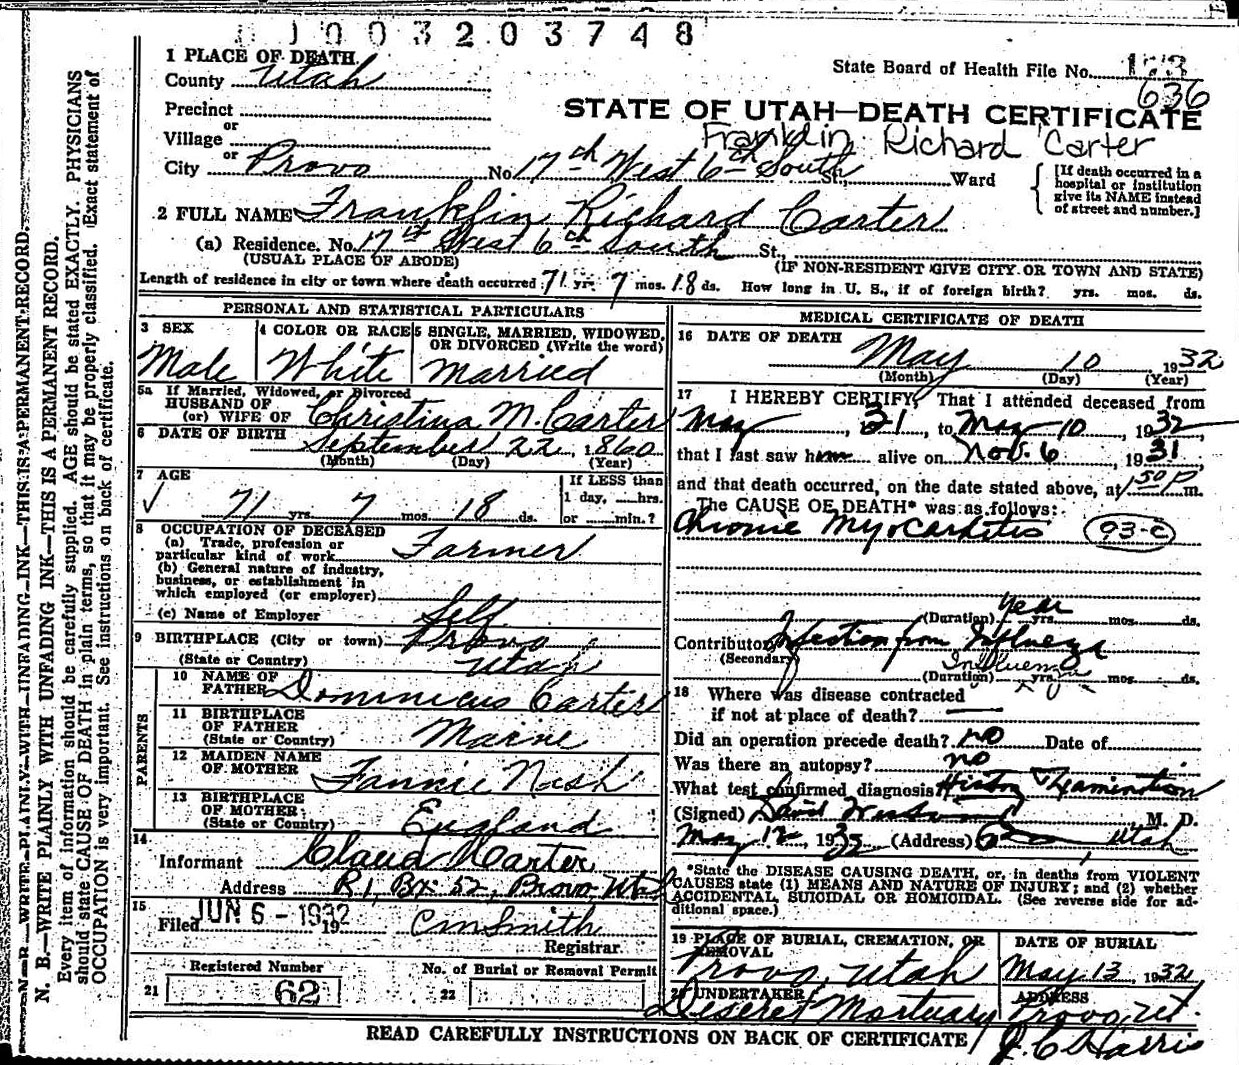 1 0 0 3 2 0 3 7 4 8
1 PLACE OF DEATH
County Utah
State Board of Health File No. 173
636
Precinct
STATE OF UTAH—DEATH CERTIFICATE
or
Village
Franklin Richard Carter
or
City Provo No. 17th West 6th South St., Ward
[If death occurred in a
hospital or institution
give its NAME instead
of street and number.]
2 FULL NAME Franklin Richard Carter
(a) Residence. No. 17th West 6th South St.,
(USUAL PLACE OF ABODE)
(IF NON-RESIDENT GIVE CITY OR TOWN AND STATE)
Length of residence in city or town where death occurred 71 yr. 7 mos. 18 ds. How long in U. S., if of foreign birth? yrs. mos. ds.
PERSONAL AND STATISTICAL PARTICULARS
3 SEX
Male
4 COLOR OR RACE
White
5 SINGLE, MARRIED, WIDOWED,
OR DIVORCED (Write the word)
Married
5a If Married, Widowed, or Divorced
HUSBAND OF
(or) WIFE OF Christina M. Carter
6 DATE OF BIRTH September 22, 1860
(Month) (Day) (Year)
7 AGE
✓ 71 yrs. 7 mos. 18 ds.
If LESS than
1 day, hrs.
or min.?
8 OCCUPATION OF DECEASED
(a) Trade, profession or
particular kind of work Farmer
(b) General nature of industry,
business, or establishment in
which employed (or employer)
(c) Name of Employer Self
9 BIRTHPLACE (City or town) Provo
(State or Country) Utah
PARENTS
10 NAME OF
FATHER Dominicus Carter
11 BIRTHPLACE
OF FATHER
(State or Country) Maine
12 MAIDEN NAME
OF MOTHER Fannie Nash
13 BIRTHPLACE
OF MOTHER
(State or Country) England
14
Informant Claud Carter
Address R1, Box 52, Provo, Utah
15
Filed JUN 6 - 1932 19 CM Smith
Registrar
Registered Number
21 62
No. of Burial or Removal Permit
22
MEDICAL CERTIFICATE OF DEATH
16 DATE OF DEATH
May 10, 1932
(Month) (Day) (Year)
17 I HEREBY CERTIFY, That I attended deceased from
May, 31, to May 10, 1932
that I last saw him alive on Nov. 6, 1931
and that death occurred, on the date stated above, at 1 50 P m.
The CAUSE OF DEATH* was as follows:
Chronic Myocarditis 93-c
(Duration) Year yrs. mos. ds.
Contributory Infection from Influenza
(Secondary) Influenza
(Duration) yrs. mos. ds.
18 Where was disease contracted
if not at place of death?
Did an operation precede death? no Date of
Was there an autopsy? no
What test confirmed diagnosis History Examination
(Signed) David M. D.
May 12, 1932 (Address) Utah
*State the DISEASE CAUSING DEATH, or, in deaths from VIOLENT
CAUSES state (1) MEANS AND NATURE OF INJURY; and (2) whether
ACCIDENTAL, SUICIDAL OR HOMICIDAL. (See reverse side for ad-
ditional space.)
19 PLACE OF BURIAL, CREMATION, OR
REMOVAL
Provo, Utah
DATE OF BURIAL
May 13, 1932
20 UNDERTAKER
Deseret Mortuary
ADDRESS
Provo, Ut.
J. C. Harris
READ CAREFULLY INSTRUCTIONS ON BACK OF CERTIFICATE
N. B.—WRITE PLAINLY WITH UNFADING INK—THIS IS A PERMANENT RECORD.
N. B.—WRITE PLAINLY WITH UNFADING INK—THIS IS A PERMANENT RECORD.
Every item of information should be carefully supplied. AGE should be stated EXACTLY. PHYSICIANS
should state CAUSE OF DEATH in plain terms, so that it may be properly classified. Exact statement of
OCCUPATION is very important. See instructions on back of certificate.